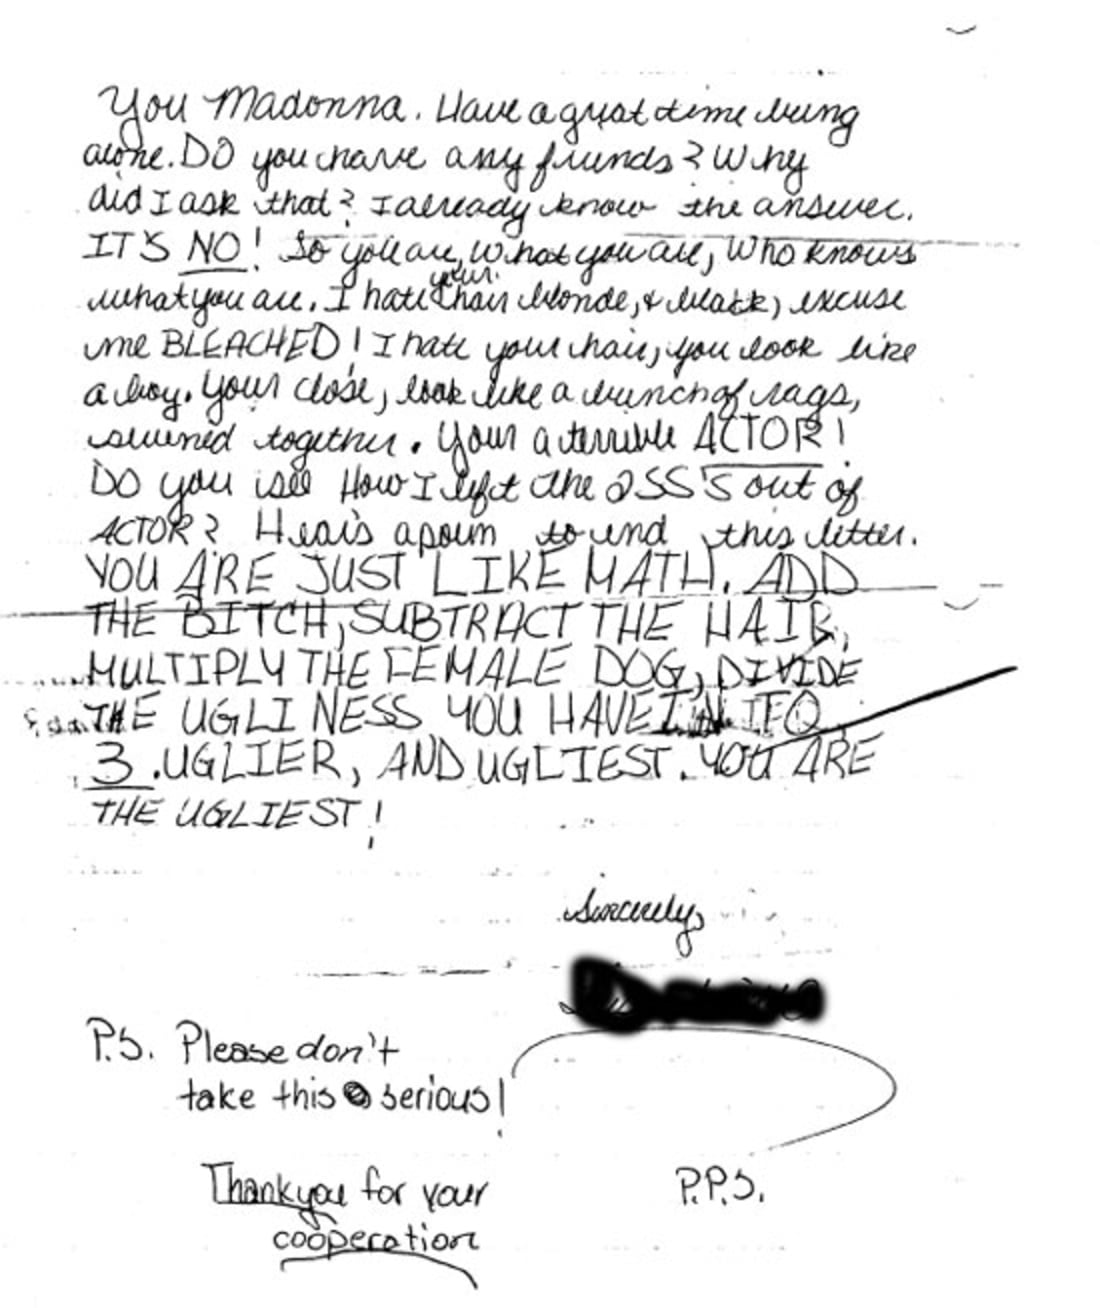 You Madonna. Have a great time being
alone. DO you have any friends? Why
did I ask that? I already know the answer.
IT'S NO! So you are, what you are, Who knows
what you are. I hate your hair blonde, & black, excuse
me BLEACHED! I hate your hair, you look like
a boy. Your close, look like a bunch of rags,
together. Your a terrible ACTOR!
DO you see How I left the
ASS'S out of
ACTOR? Hear's a poem to end this letter.
YOU ARE JUST LIKE MATH. ADD
THE BITCH, SUBTRACT THE HAIR,
MULTIPLY THE FEMALE DOG, DIVIDE
THE UGLINESS YOU HAVE INTO
3. UGLIER, AND UGLIEST. YOU ARE
THE UGLIEST!
Sincerely,
P.S. Please don't
take this serious!
Thank you for your
cooperation
P.P.S.